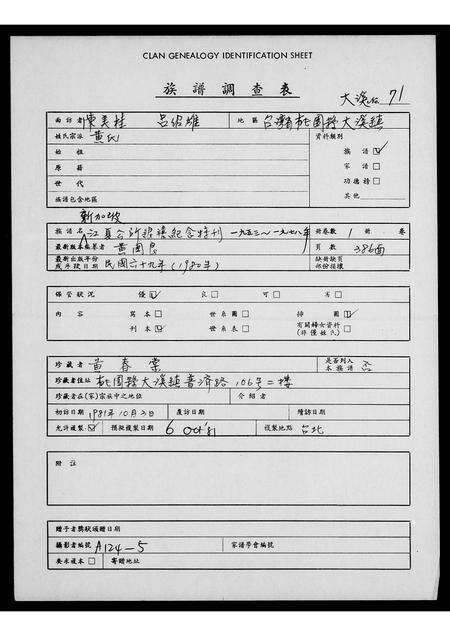 CLAN GENEALOGY IDENTIFICATION SHEET
族譜調查表
大溪 71
面訪者 陳美桂 呂紹雄 地區 台灣桃園縣大溪鎮
姓氏宗派 黃氏 資料類別
始祖 族譜☑
原籍 家譜□
世代 功德榜□
族譜包含地區 其他
新加坡
族譜名 江夏公所銀禧紀念特刊 一九五三~一九七八年 冊卷數 1 冊 卷
最新版本編纂者 黃國良 頁數 386面
最新出版年份或手錄日期 民國六十九年(1980年) 缺冊缺頁部份損壞
保管狀況 優☑ 良□ 可□ 劣□
內容 寫本□ 世系圖□ 掃圖☑
刊本☑ 世系表□ 有關婦女資料(非僅姓氏)□
珍藏者 黃春棠 是否列入本族譜 否
珍藏者住址 桃園縣大溪鎮普濟路106号二樓
珍藏者在(家)宗族中之地位 介紹者
初訪日期 1981年10月3日 覆訪日期 續訪日期
允許複製☑ 預拟複製日期 6 Oct '81 複製地點 台北
附注
贈予者獎狀頒贈日期
攝影者編號 A124-5 家譜學會編號
要求複本□ 寄贈日期